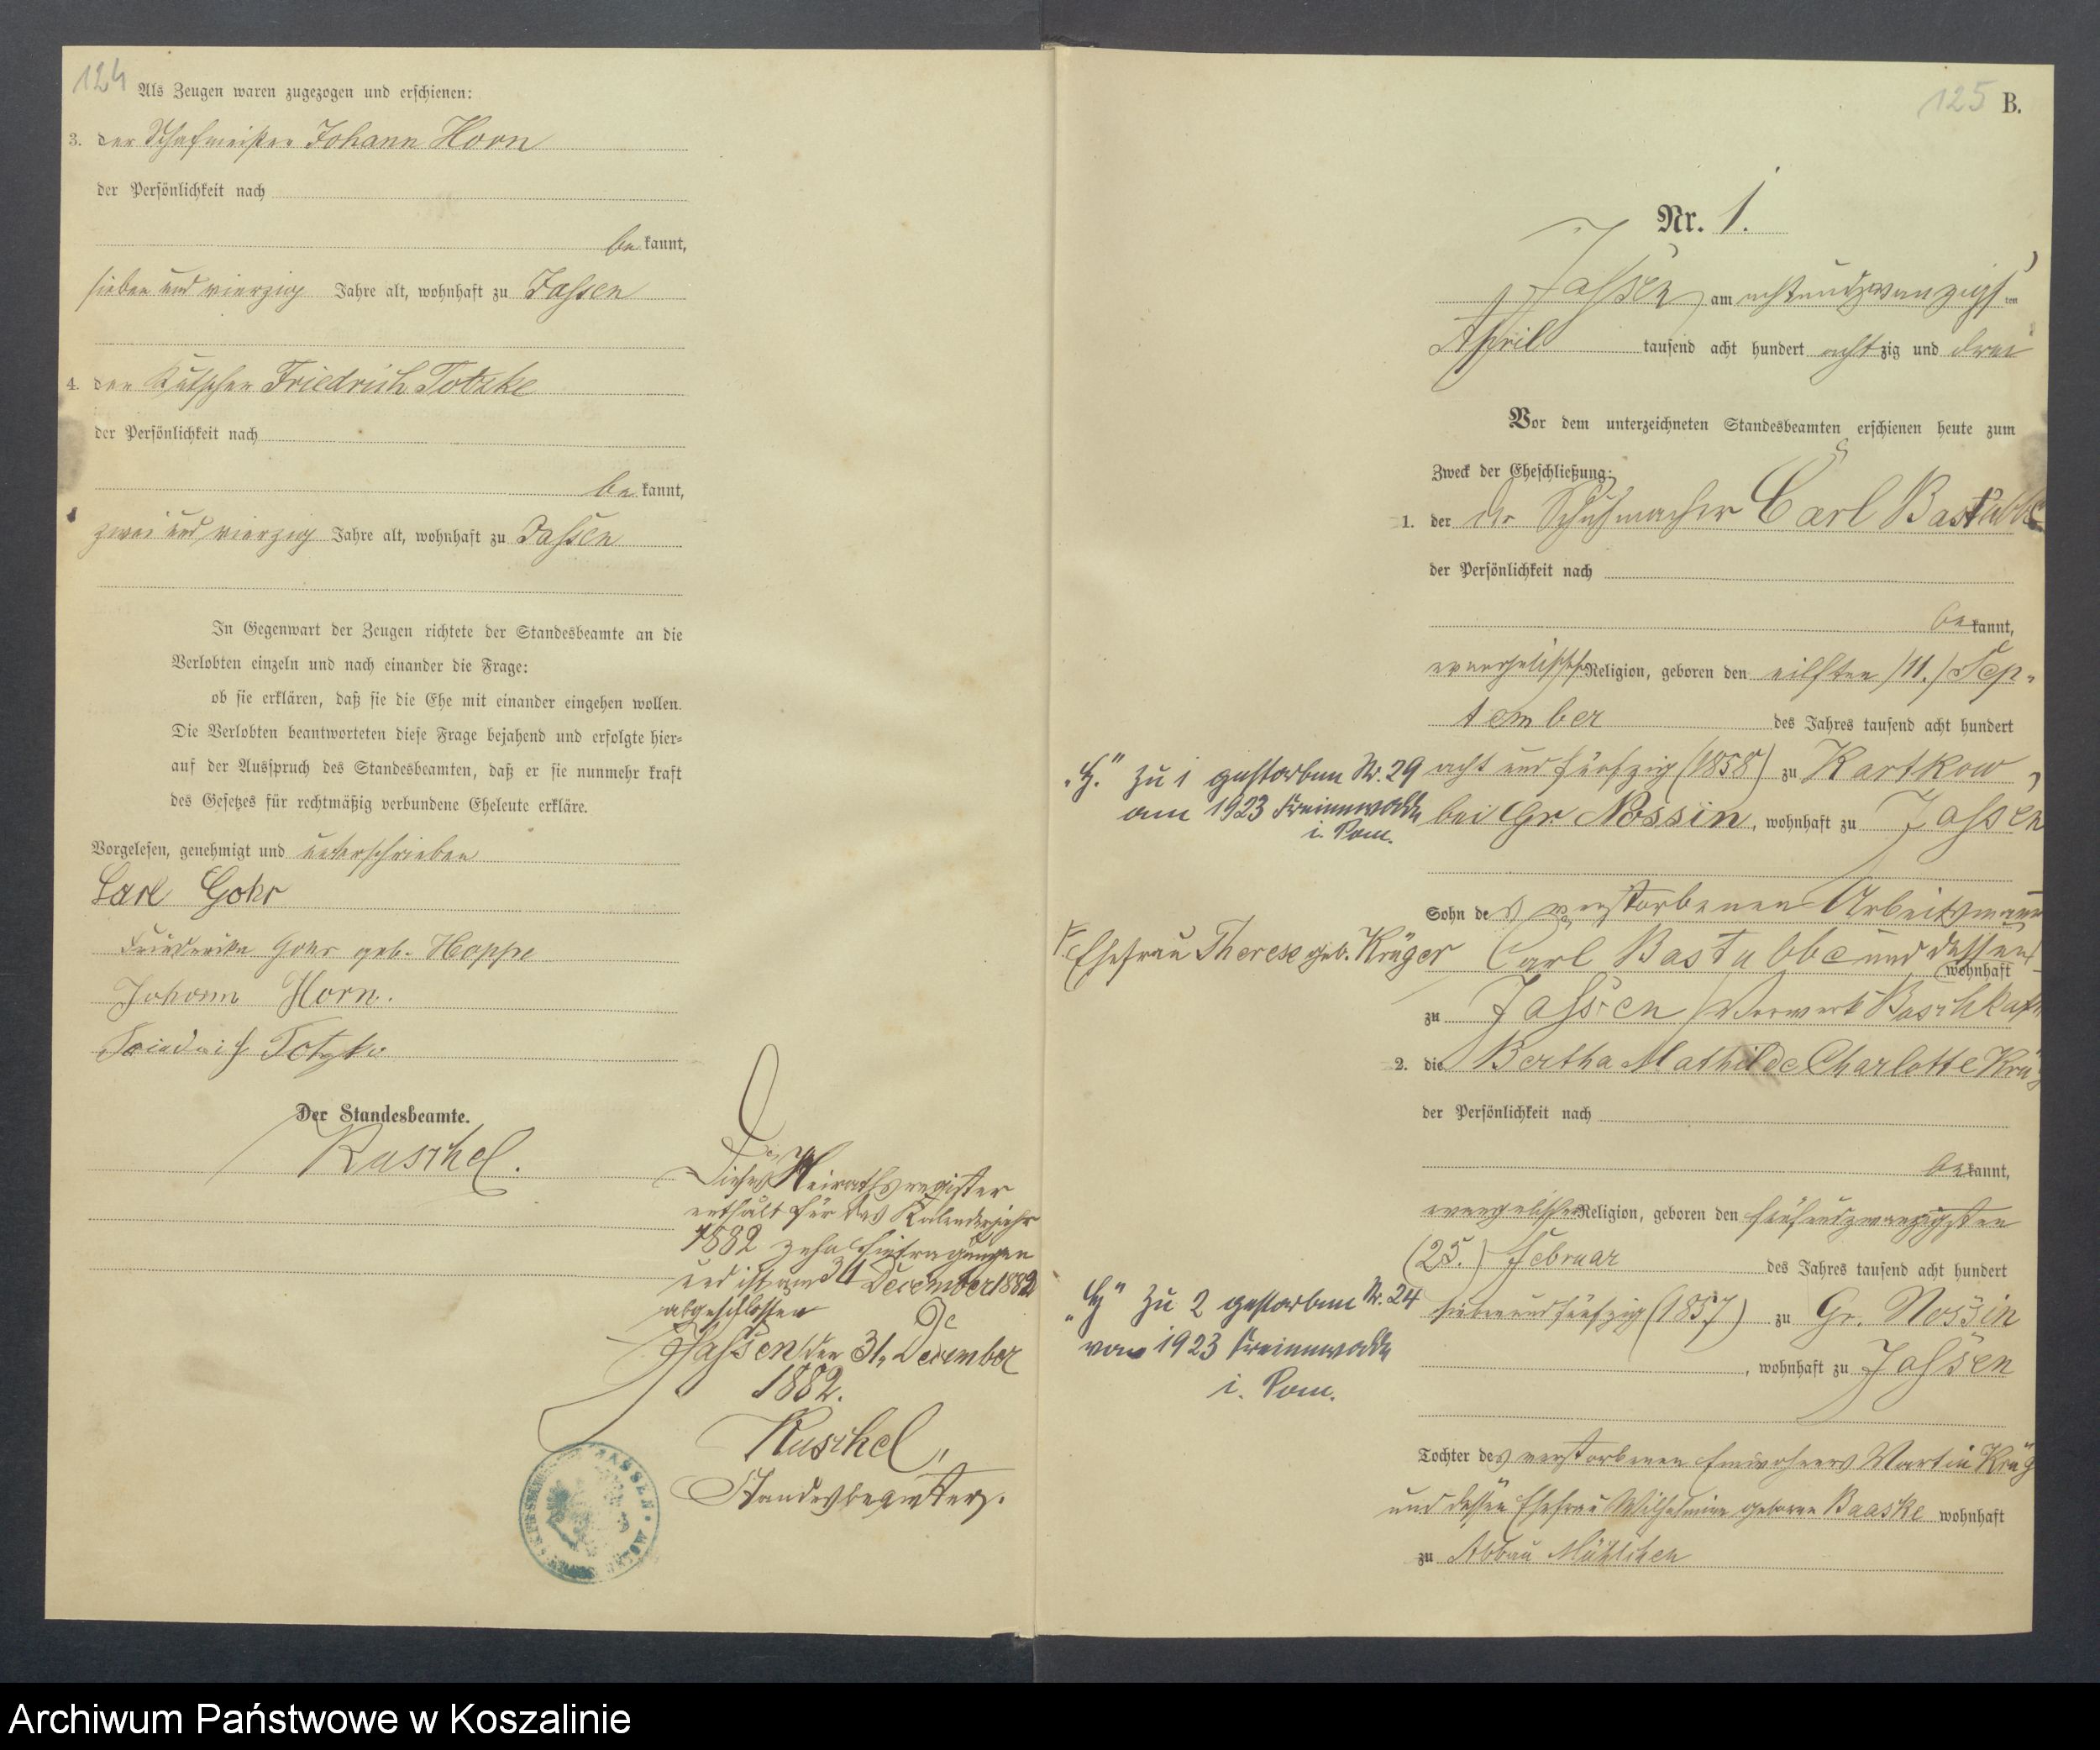 124
Als Zeugen waren zugezogen und erschienen:
3. der Schafmeister Johann Horn
der Persönlichkeit nach
be kannt,
sieben und vierzig Jahre alt, wohnhaft zu Jassen
4. der Kutscher Friedrich Totzke
der Persönlichkeit nach
be kannt,
zwei und vierzig Jahre alt, wohnhaft zu Jassen
In Gegenwart der Zeugen richtete der Standesbeamte an die
Verlobten einzeln und nach einander die Frage:
ob sie erklären, daß sie die Ehe mit einander eingehen wollen.
Die Verlobten beantworteten diese Frage bejahend und erfolgte hier-
auf der Ausspruch des Standesbeamten, daß er sie nunmehr kraft
des Gesetzes für rechtmäßig verbundene Eheleute erkläre.
Vorgelesen, genehmigt und unterschrieben
Carl Gohr
Friederike Gohr geb. Hoppe
Johann Horn.
Friedrich Totzke
Der Standesbeamte.
Kuschel.
Dieses Heirathsregister
enthält für das Kalenderjahr
1882 zehn Eintragungen
und ist am 31 December 1882
abgeschlossen
Jassen den 31. December
1882.
Kuschel,
Standesbeamter.
125 B.
Nr. 1.
Jassen, am achtundzwanzigsten
April tausend acht hundert achtzig und drei
Vor dem unterzeichneten Standesbeamten erschienen heute zum
Zweck der Eheschließung:
1. der der Schuhmacher Carl Bastubbe
der Persönlichkeit nach
be kannt,
evangelischer Religion, geboren den eilften /11./ Sep-
tember des Jahres tausend acht hundert
acht und fünfzig (1858) zu Kartkow,
bei Gr Nossin, wohnhaft zu Jassen
„H." zu 1 gestorben Nr. 29
am 1923 Freienwalde
i. Pom.
Sohn des verstorbenen Arbeitsmann
Carl Bastubbe und dessen
Ehefrau Therese geb. Krüger
wohnhaft
zu Jassen Vorwerk
2. die Bertha Mathilde Charlotte Krüg
der Persönlichkeit nach
be kannt,
evangelischer Religion, geboren den fünfundzwanzigsten
(25.) Februar des Jahres tausend acht hundert
siebenundfünfzig (1857) zu Gr. Nossin
, wohnhaft zu Jassen
„H" zu 2 gestorben Nr. 24
von 1923 Freienwalde
i. Pom.
Tochter des verstorbenen Einwohners Martin Krüg
und dessen Ehefrau Wilhelmine geborne Baaske wohnhaft
zu Abbau Mühlchen
JASSEN
Archiwum Państwowe w Koszalinie